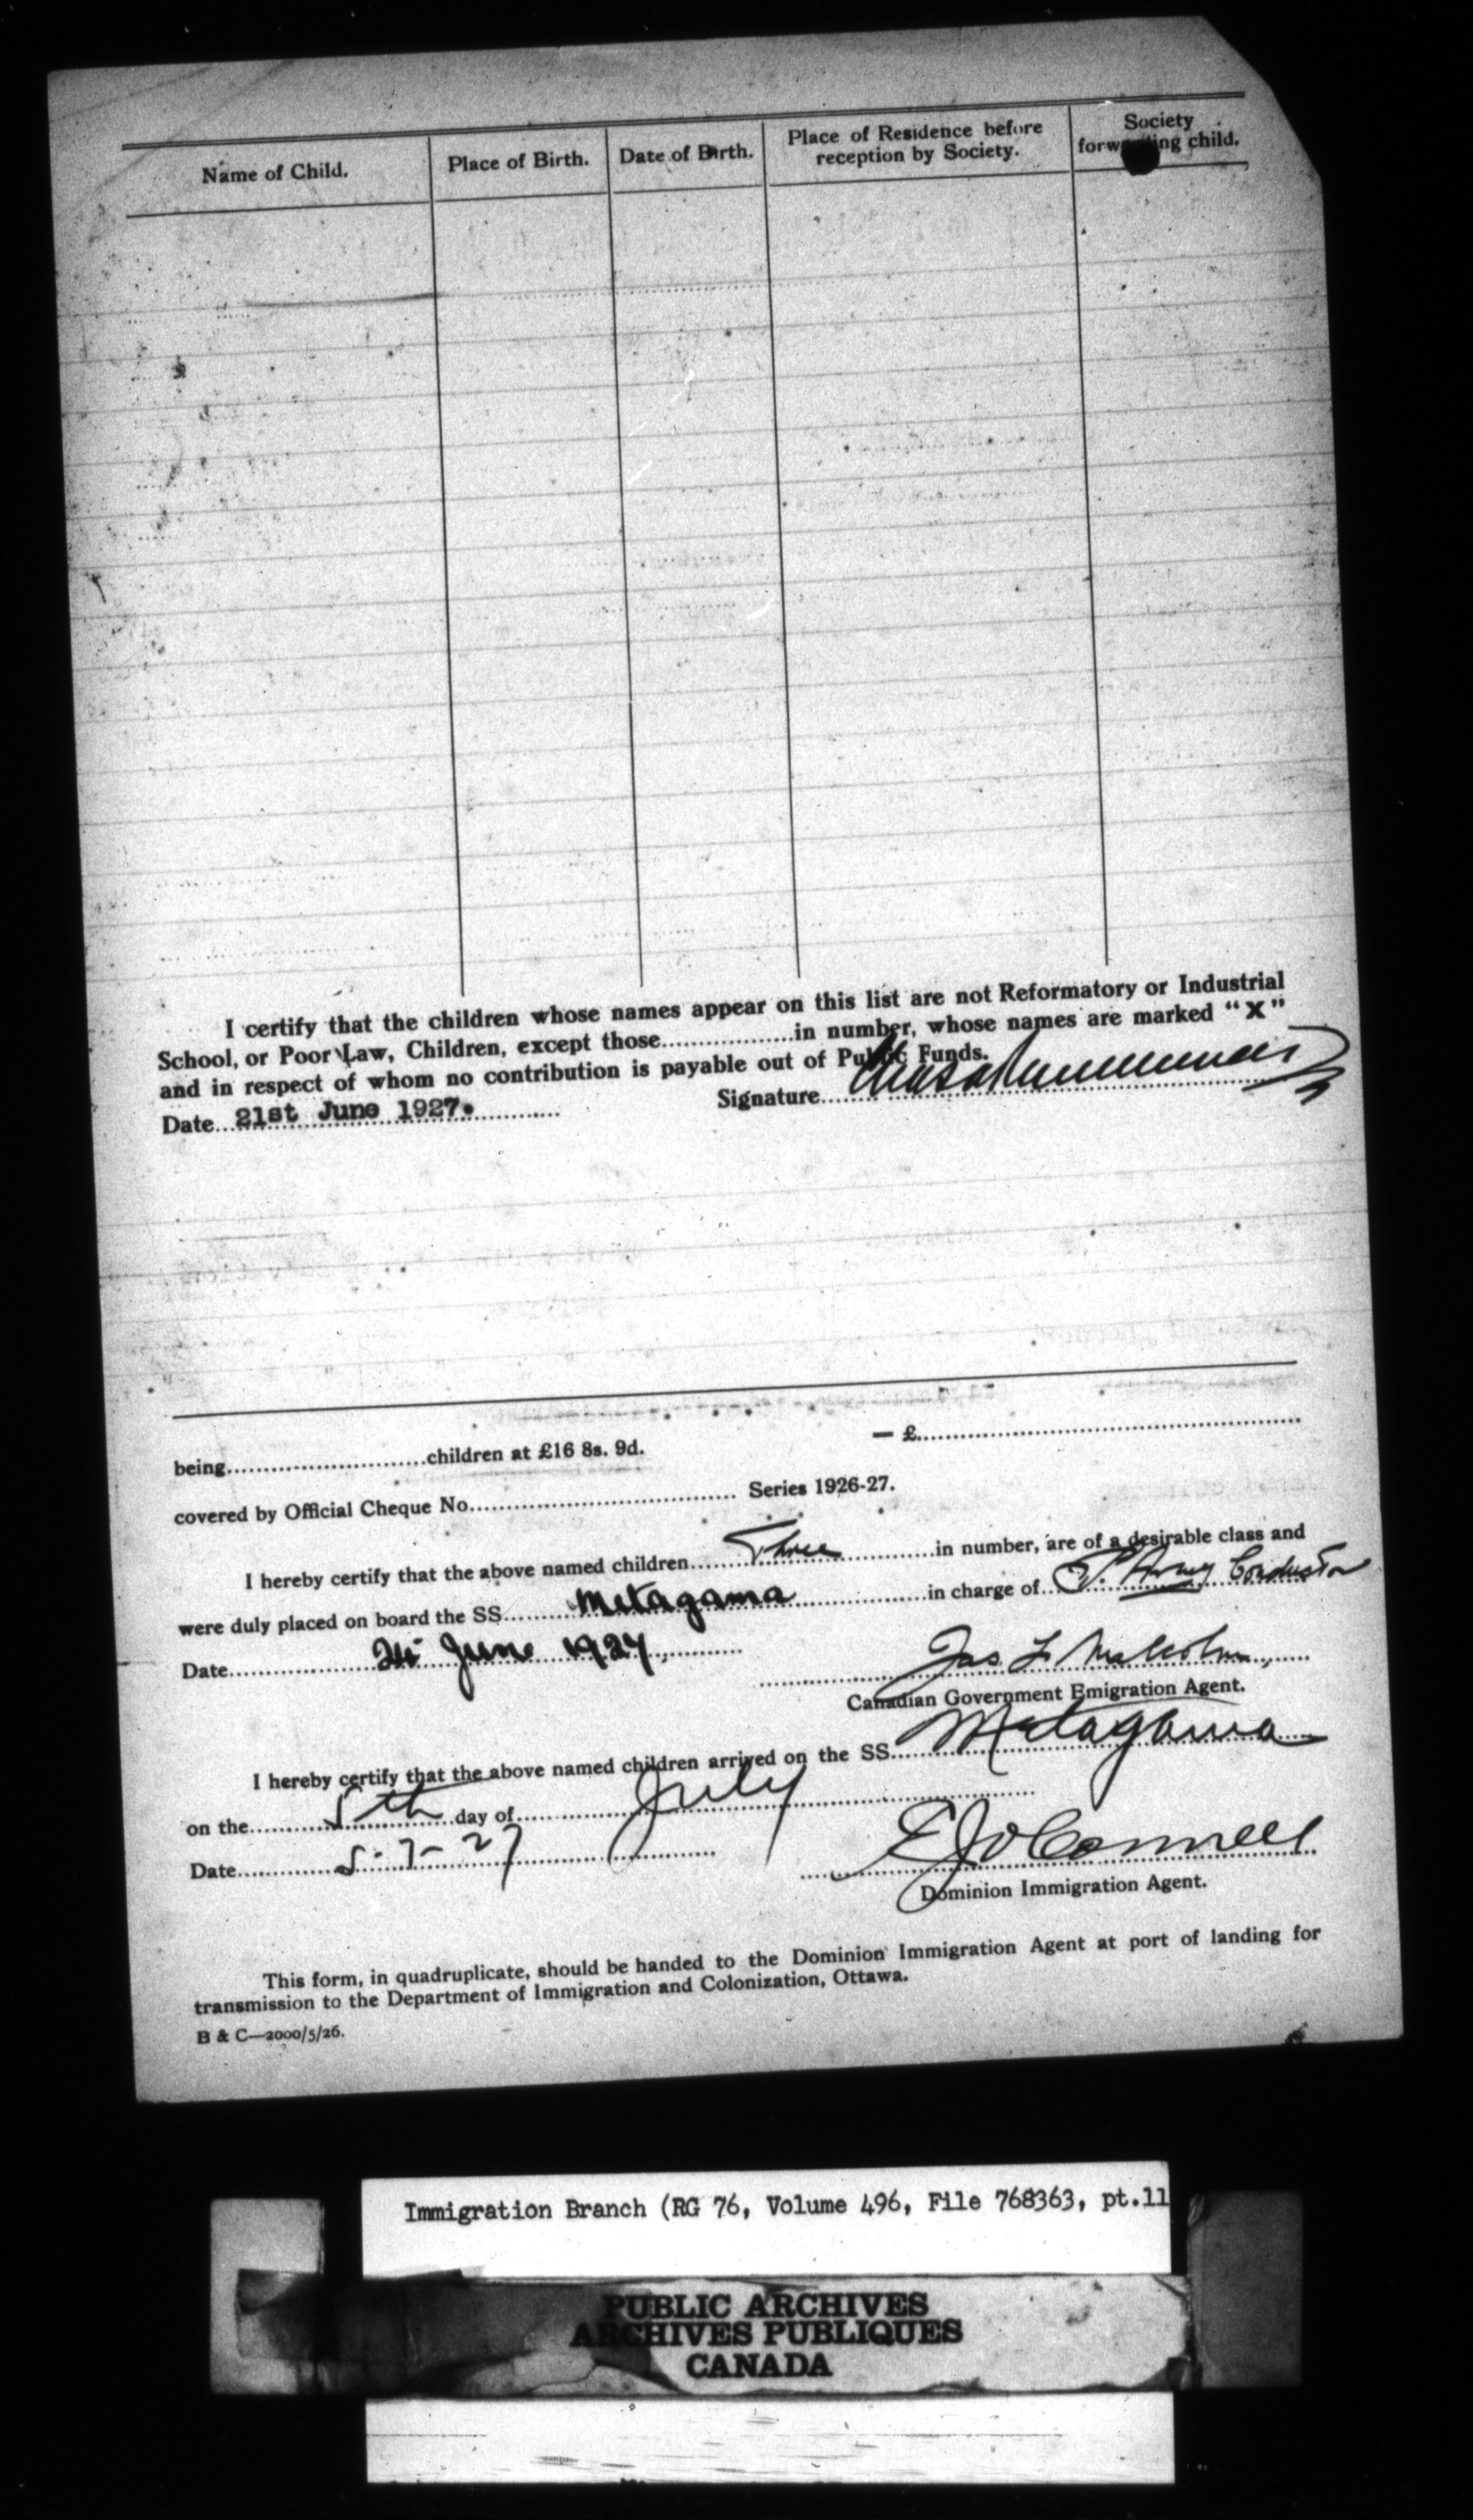 Name of Child. Place of Birth. Date of Birth. Place of Residence before reception by Society. Society forwarding child.
I certify that the children whose names appear on this list are not Reformatory or Industrial
School, or Poor Law, Children, except those..................in number, whose names are marked “X”
and in respect of whom no contribution is payable out of Public Funds.
Date 21st June 1927. Signature
being..........................children at £16 8s. 9d. — £
covered by Official Cheque No. Series 1926-27.
I hereby certify that the above named children Three in number, are of a desirable class and
were duly placed on board the SS Metagama in charge of S. Army Conductor
Date June 1927. Jas L Malcolm
Canadian Government Emigration Agent.
I hereby certify that the above named children arrived on the SS. Metagama
on the 5th day of July
Date 5-7-27 E J O'Connell
Dominion Immigration Agent.
This form, in quadruplicate, should be handed to the Dominion Immigration Agent at port of landing for
transmission to the Department of Immigration and Colonization, Ottawa.
B & C—2000/5/26.
Immigration Branch (RG 76, Volume 496, File 768363, pt.11
PUBLIC ARCHIVES
ARCHIVES PUBLIQUES
CANADA